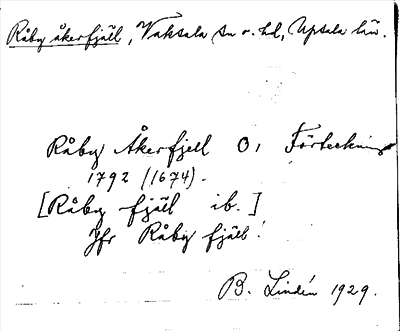 Råby åkerfjäll, Vaksala sn o. hd, Upsala län.
Råby Åkerfjell O, Förteckning
1792 (1674).
[Råby fjäll ib.]
Jfr Råby fjäll!
B. Lindén 1929.